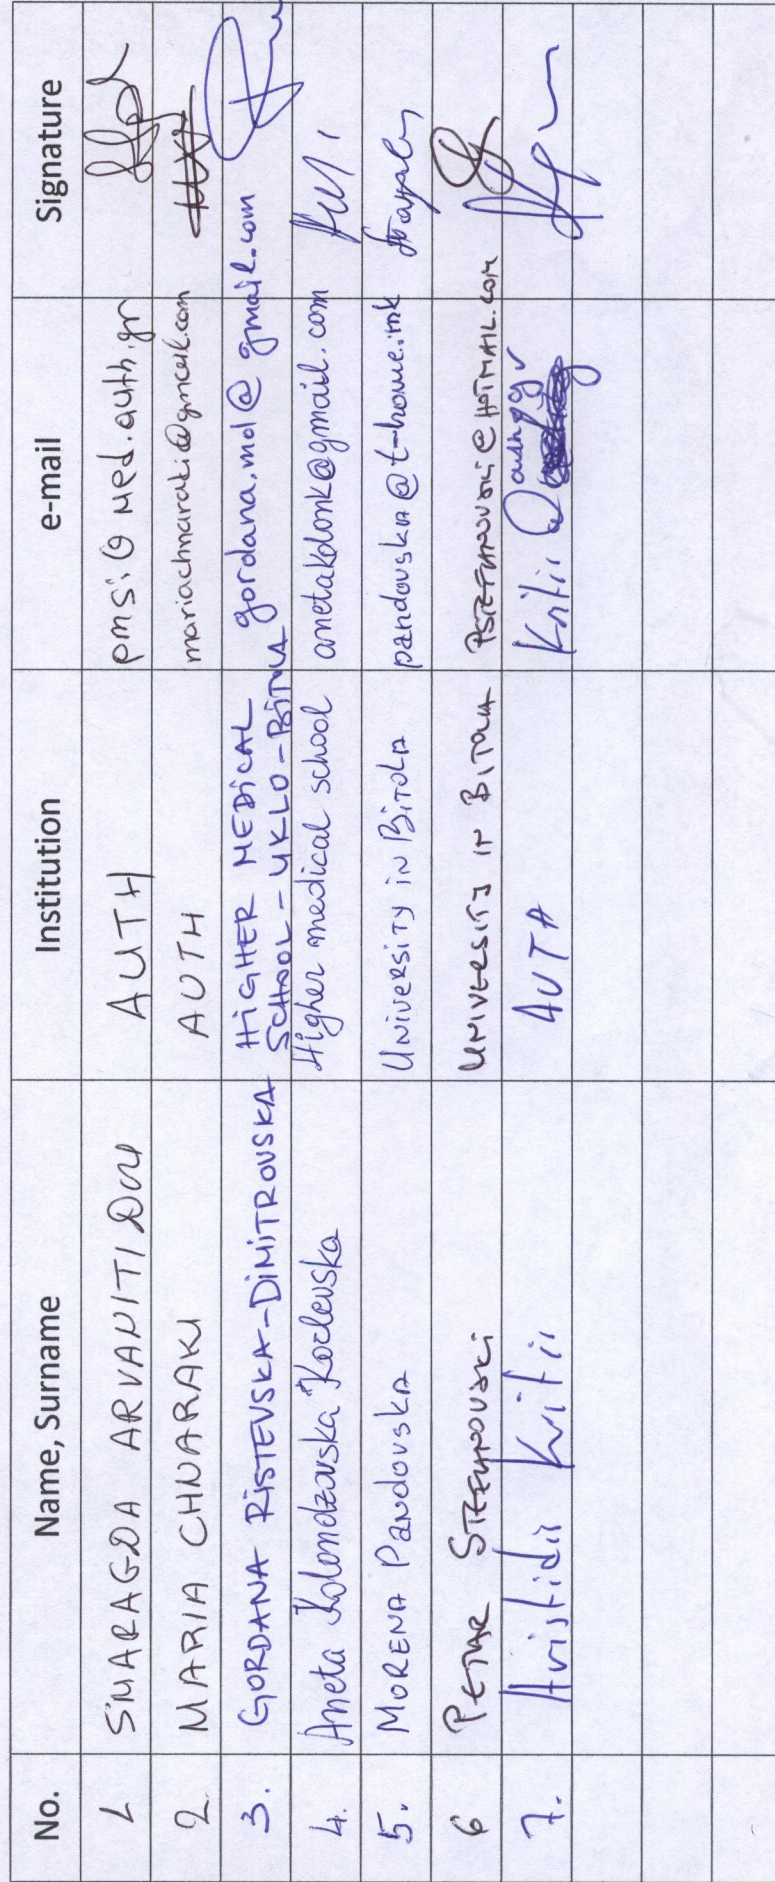 No. Name, Surname Institution e-mail Signature
1 SMARAGDA ARVANITIDOU AUTH pmsi@med.auth.gr
2 MARIA CHNARAKI AUTH mariachnaraki@gmail.com
3. GORDANA RISTEVSKA-DIMITROVSKA HIGHER MEDICAL gordana.md@gmail.com
SCHOOL - UKLO - BITOLA
4. Aneta Kolondzovska Kochevska Higher medical school anetakolonk@gmail.com
5. MORENA PANDOVSKA UNIVERSITY IN BITOLA pandovska@t-home.mk
6 PETAR STEFANOVSKI UNIVERSITY IN BITOLA PSTEFANOVSKI@HOTMAIL.COM
7. Aristidis Kritis AUTH Kritis@auth.gr